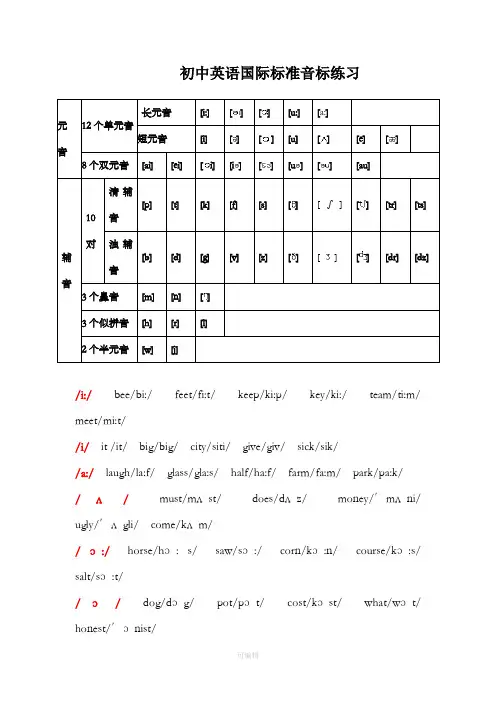 初中英语国际标准音标练习
元音 12个单元音 长元音 [i:] [ə:] [ɔ:] [u:] [ɑ:]
短元音 [i] [ə] [ɔ] [u] [ʌ] [e] [æ]
8个双元音 [ai] [ei] [ɔi] [iə] [ɛə] [uə] [əu] [au]
辅音 10对 清辅音 [p] [t] [k] [f] [s] [θ] [ʃ] [tʃ] [tr] [ts]
浊辅音 [b] [d] [g] [v] [z] [ð] [ʒ] [dʒ] [dr] [dz]
3个鼻音 [m] [n] [ŋ]
3个似拼音 [h] [r] [l]
2个半元音 [w] [j]
/i:/ bee/bi:/ feet/fi:t/ keep/ki:p/ key/ki:/ team/ti:m/
meet/mi:t/
/i/ it /it/ big/big/ city/siti/ give/giv/ sick/sik/
/a:/ laugh/la:f/ glass/gla:s/ half/ha:f/ farm/fa:m/ park/pa:k/
/ ʌ / must/mʌ st/ does/dʌ z/ money/′ mʌ ni/
ugly/′ ʌ gli/ come/kʌ m/
/ ɔ :/ horse/hɔ : s/ saw/sɔ :/ corn/kɔ :n/ course/kɔ :s/
salt/sɔ :t/
/ ɔ / dog/dɔ g/ pot/pɔ t/ cost/kɔ st/ what/wɔ t/
honest/′ ɔ nist/
可编辑